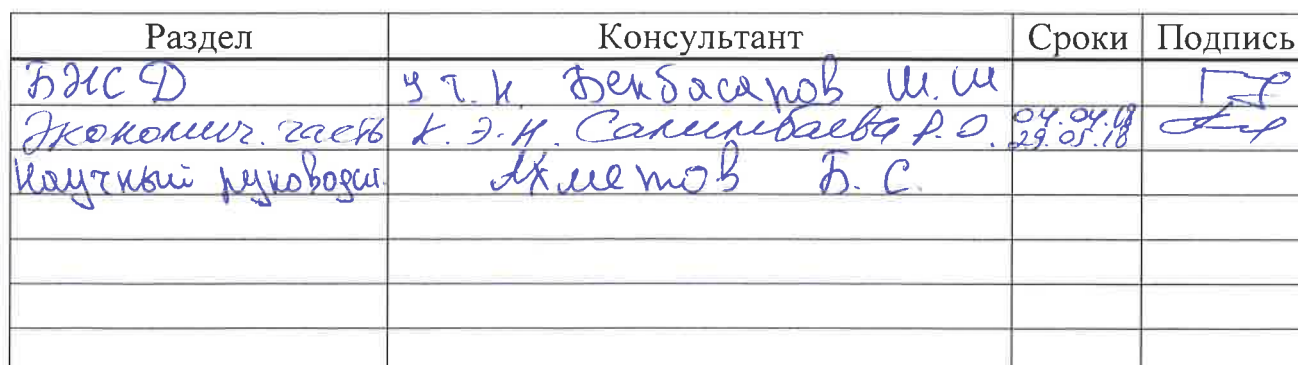 Раздел Консультант Сроки Подпись
БЖСД Бекбасаров Ш.Ш
Экономич. часть к.э.н. 04.04.18
29.05.18
Научный руководит. Ахметов Б.С.